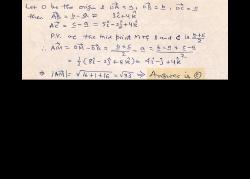 Let O be the origin & OA = a, OB = b, OC = c
then AB = b - a = 3î + 4k̂
AC = c - a = 5î - 2ĵ + 4k̂
P.V. of the mid point M of B and C is (b + c)/2
∴ AM = OM - OA = (b + c)/2 - a = (b - a + c - a)/2
= 1/2 (8î - 2ĵ + 8k̂) = 4î - ĵ + 4k̂
⇒ |AM| = √(16 + 1 + 16) = √33 ⇒ Answer is